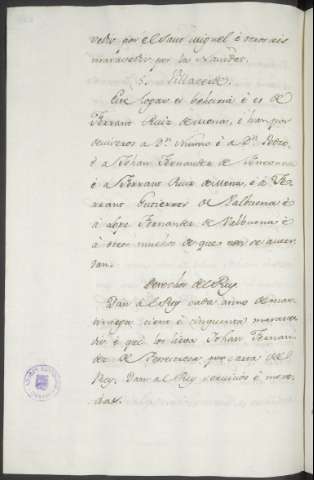 vedis por el Sant Miguel é otros seis
maravedis por la Navidat.
5. Villaverde.
Este logar es behetria é es de
Ferrant Ruiz de Mena, é han por
deviseros a Dn. Nunno é a Dn. Pedro,
é a Johan Fernandez de
é a Ferrant Ruiz de Mena, é á Fe-
rrant Gutierrez de Valbuena é
á Lope Fernandez de Valbuena é
á otros muchos de que non se acuer-
dan.
Derechos del Rey
Dan al Rey cada anno de mar-
tiniega ciento é cinquenta marave-
dis é que los lieva Johan Fernan-
dez de por carta del
Rey. Dan al Rey servicios é mone-
das.